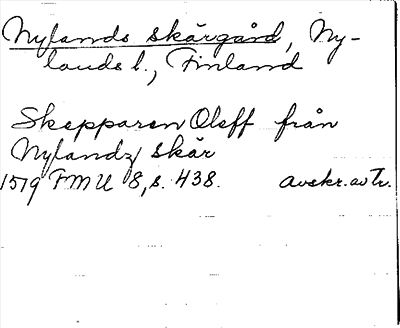 Nylands skärgård, Ny-
lands l., Finland
Skepparen Oleff från
Nylandz skär
1519 FMU 8, s. 438. avskr. av Tr.